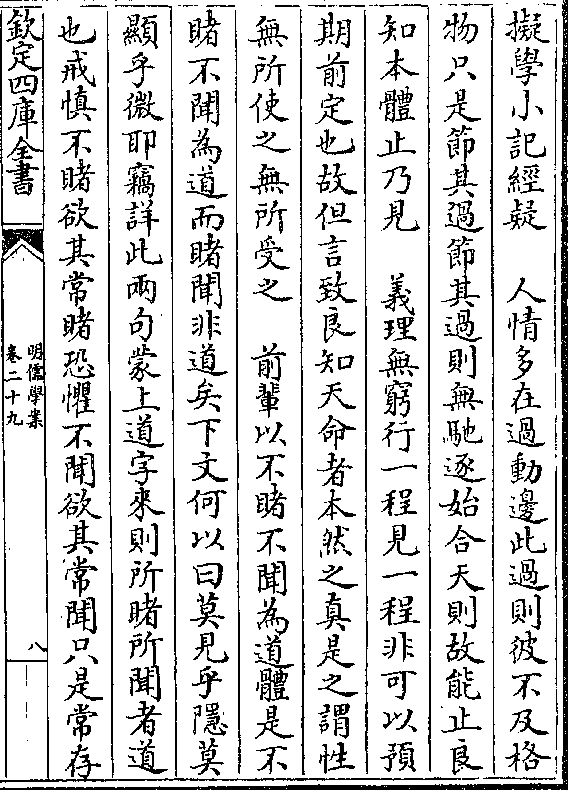 擬學小記經疑　人情多在過動邊此過則彼不及格
物只是節其過節其過則無馳逐始合天則故能止良
知本體止乃見　義理無窮行一程見一程非可以預
期前定也故但言致良知天命者本然之真是之謂性
無所使之無所受之　前輩以不睹不聞為道體是不
睹不聞為道而睹聞非道矣下文何以曰莫見乎隱莫
顯乎微耶竊詳此兩句蒙上道字來則所睹所聞者道
也戒慎不睹欲其常睹恐懼不聞欲其常聞只是常存
欽定四庫全書
明儒學案
卷二十九
八